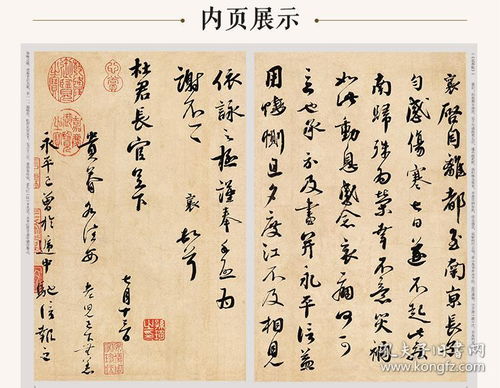 内页展示
襄啓自離都至南京長子
匀感傷寒七日遂不起此疾
南歸殊為榮幸不意災禍
如此動息感念哀痛何可
言也承示及書并永平信益
用悽惻旦夕度江不及相見
依詠之極謹奉手啓為
謝不一一 襄 頓首
杜君長官足下
七月十三日
貴眷各佳安老兒已下無恙
永平已曾於遞中馳信報之
孔夫子旧书网
www.kongfz.com